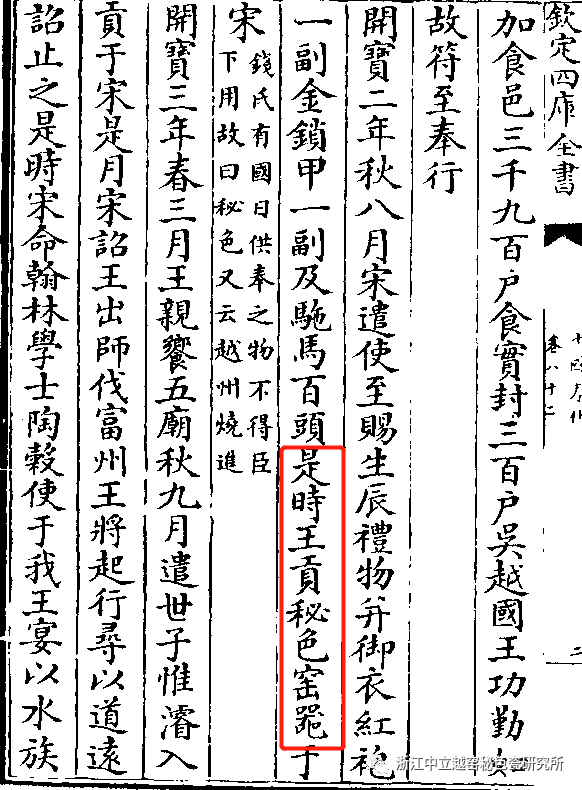 欽定四庫全書
加食邑三千九百户食實封三百户吳越國王功勤如
故符至奉行
開寶二年秋八月宋遣使至賜生辰禮物并御衣紅袍
一副金鎖甲一副及駞馬百頭是時王貢秘色窑噐于
宋
錢氏有國日供奉之物不得臣
下用故曰秘色又云越州燒進
開寶三年春三月王親饗五廟秋九月遣世子惟濬入
貢于宋是月宋詔王出師伐富州王將起行尋以道遠
詔止之是時宋命翰林學士陶穀使于我王宴以水族
浙江中立越窑秘色瓷研究所